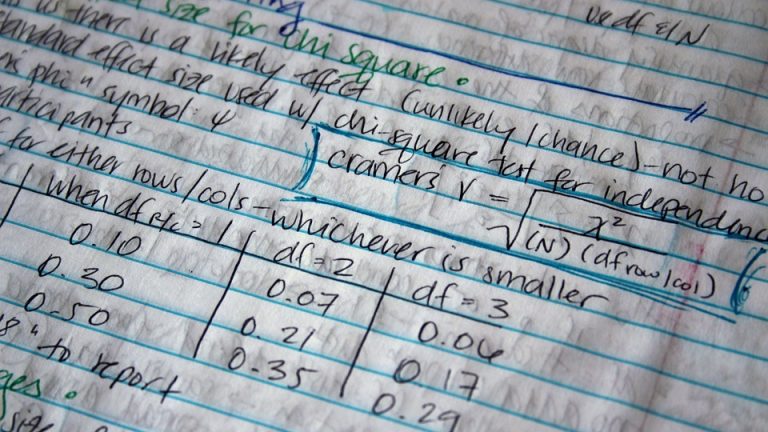 ve df & N
size for chi square.
is there is a likely effect (unlikely/chance) - not no
standard effect size used w/ chi-square test for independence
phi symbol: φ
participants
cramers V = √ χ² / (N) (df row/col)
for either rows/cols - whichever is smaller
when df r/c = 1 df = 2 df = 3
0.10 0.07 0.06
0.30 0.21 0.17
0.50 0.35 0.29
to report
ges.
size